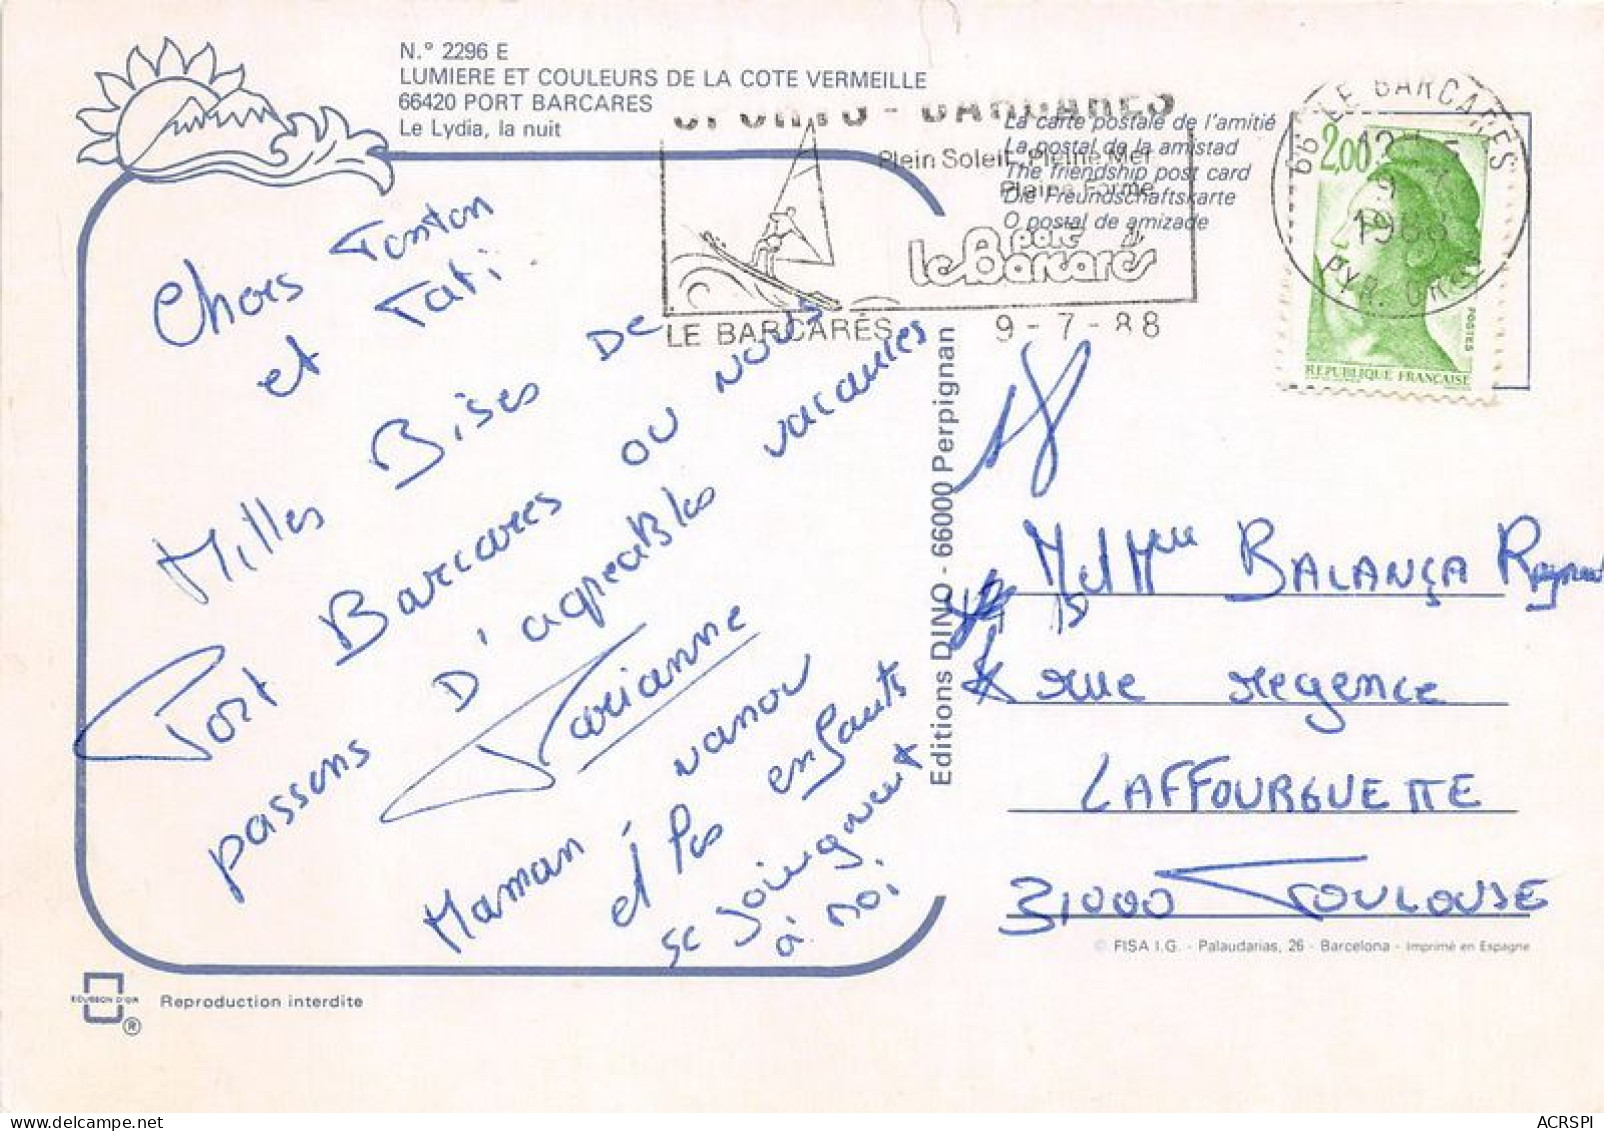 N.° 2296 E
LUMIERE ET COULEURS DE LA COTE VERMEILLE
66420 PORT BARCARES
Le Lydia, la nuit
SPORTS - BARCARES
Plein Soleil, Pleine Mer
Pleine Forme
port
le Barcarès
LE BARCARÈS
9 - 7 - 88
La carte postale de l'amitié
La postal de la amistad
The friendship post card
Die Freundschaftskarte
O postal de amizade
66 LE BARCARES
1988
PYR. ORles
2,00
POSTES
REPUBLIQUE FRANÇAISE
Chers Tonton
et Tati
Milles Bises De
Port Barcares ou nous
passons D'agreables vacances
Marianne
Maman, nanou
et les enfants
se joingnent
à moi
Editions DINO - 66000 Perpignan
M et Mme BALANÇA Raymond
15
rue regence
LAFFOURGUETTE
31000 TOULOUSE
© FISA I.G. - Palaudarias, 26 - Barcelona - Imprimé en Espagne
ECUSSON D'OR
®
Reproduction interdite
ACRSPI